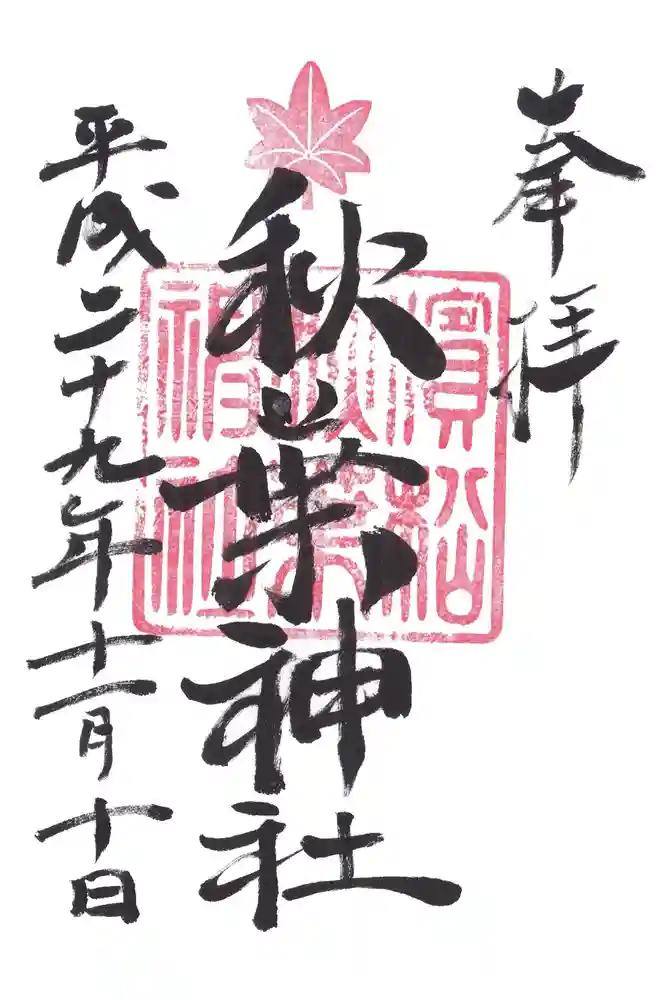 奉拝
秋葉神社
平成二十九年十一月十日
濱松
秋葉
神社